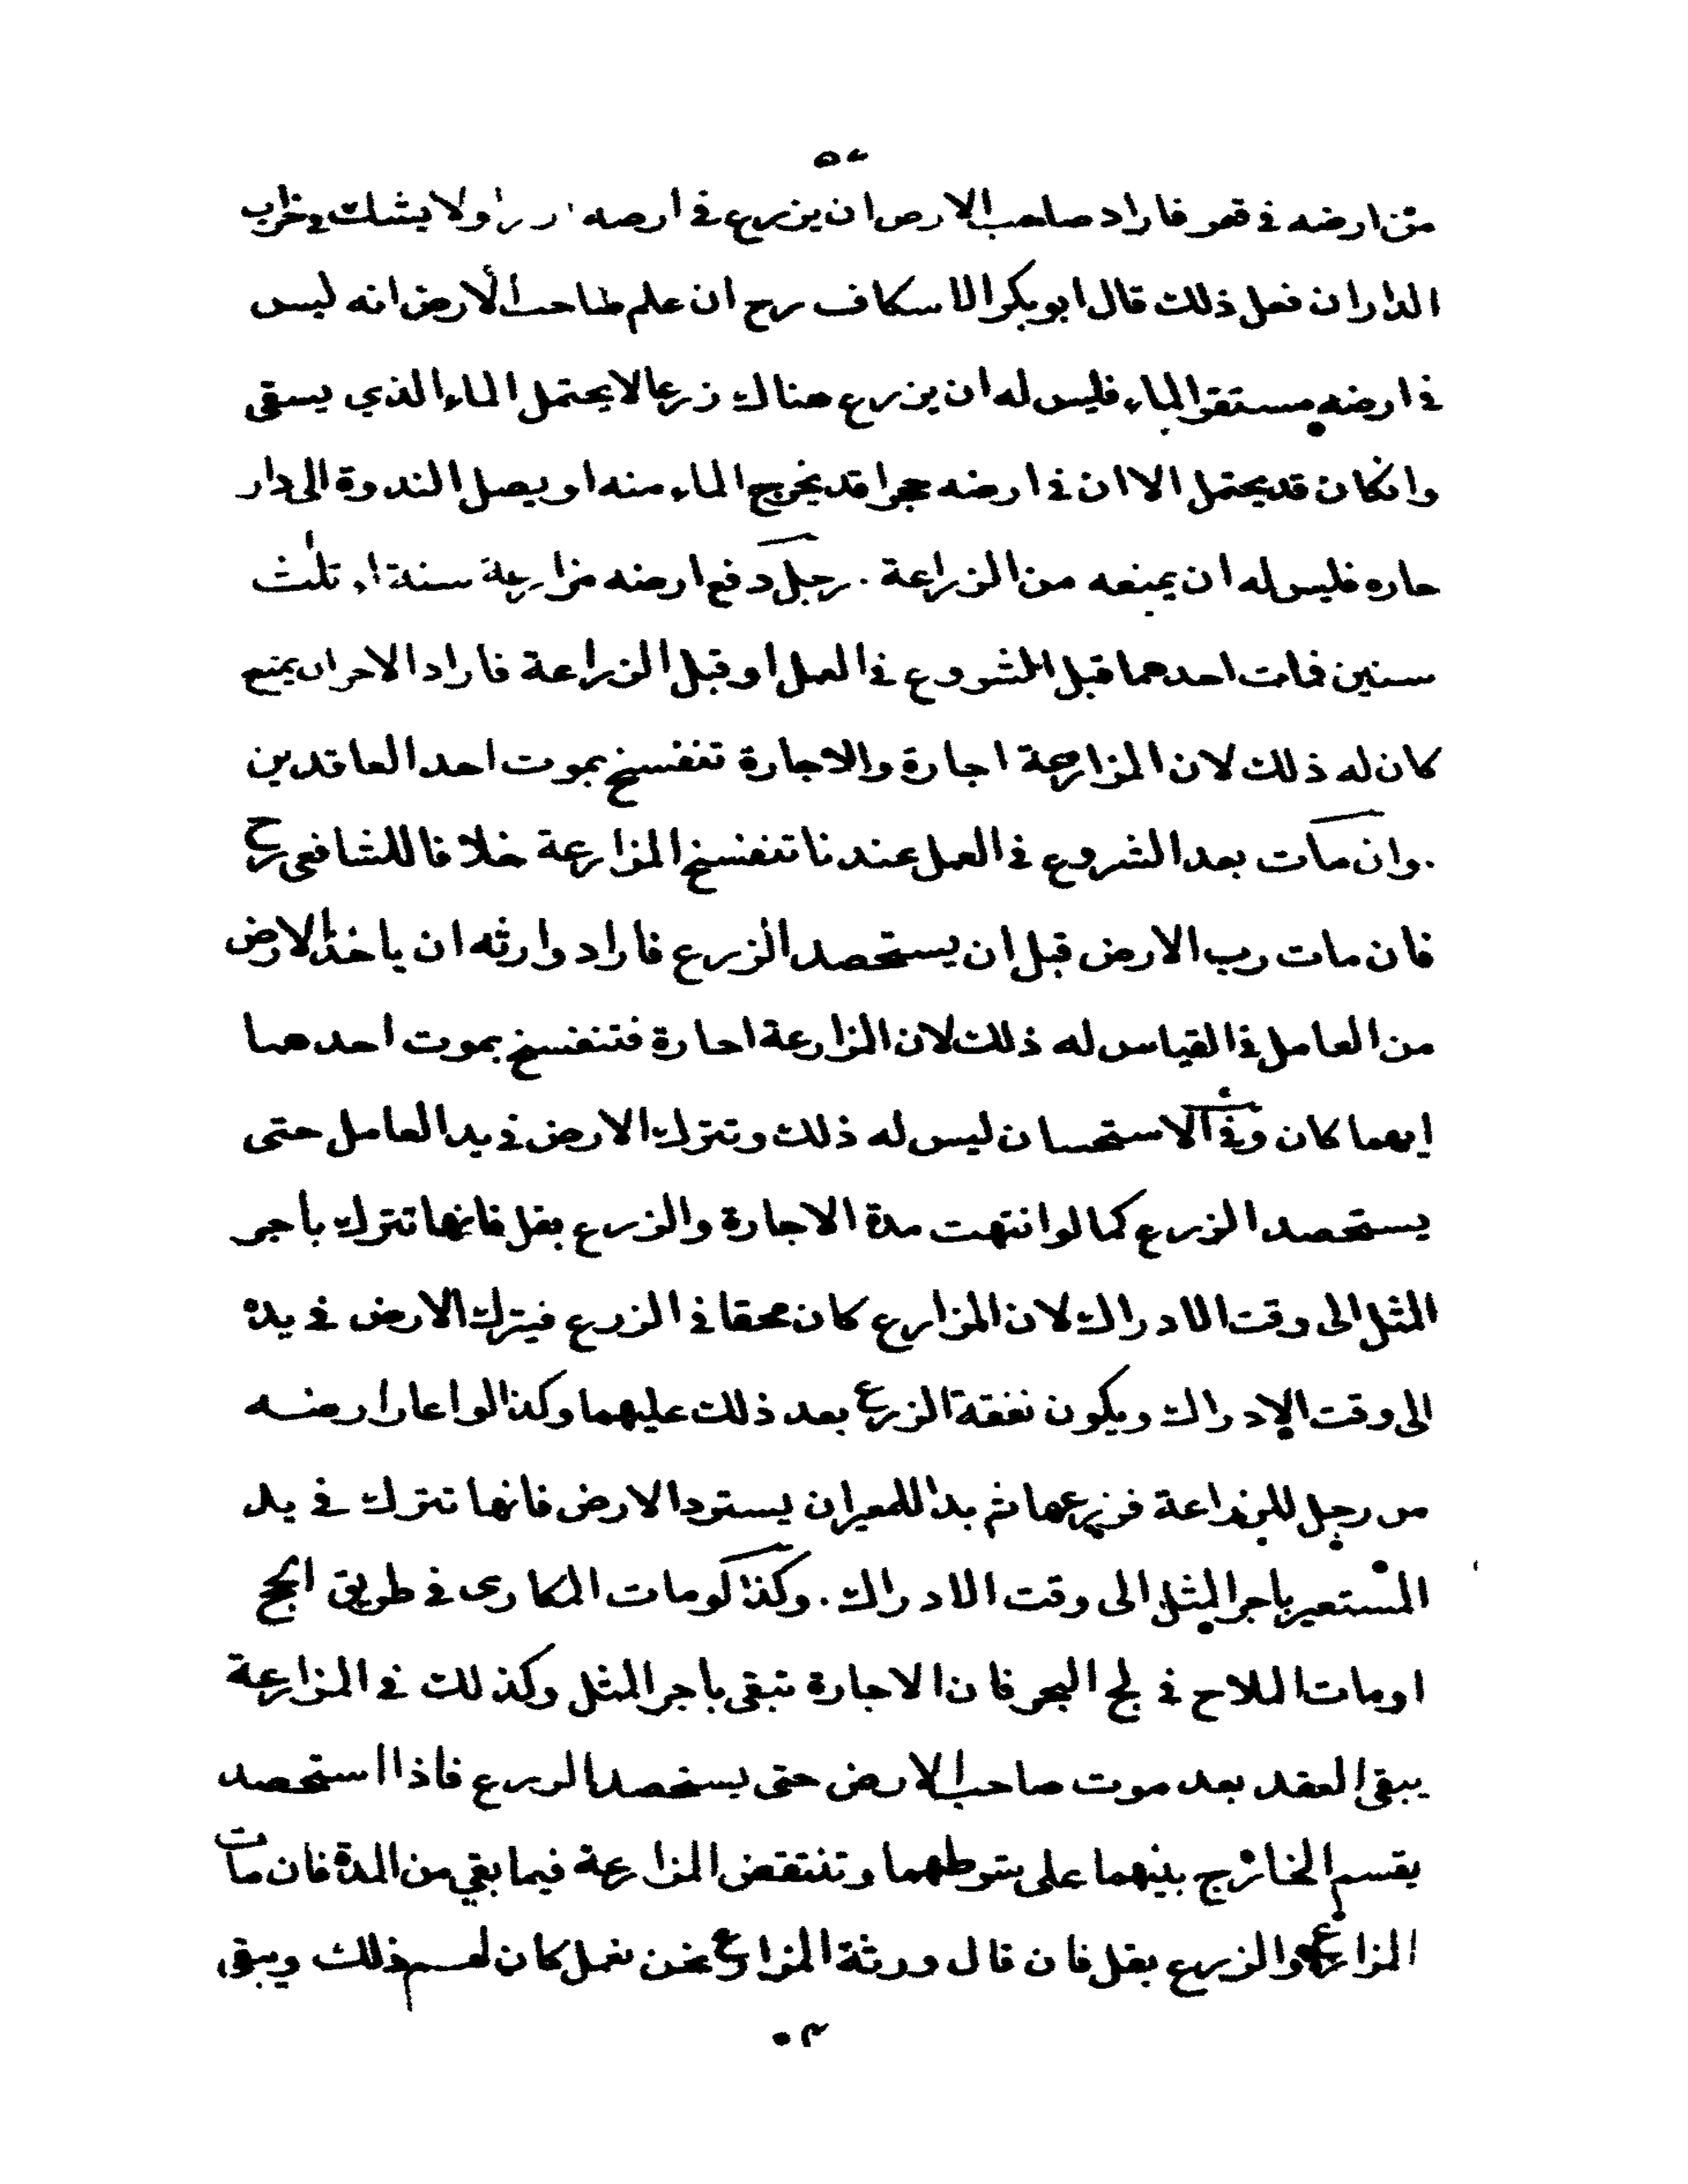 من ارضه في قعر فاراد صاحب الارض ان يزرع في ارضه ولا يشك في خراب
الدار ان فعل ذلك قال ابو بكر الاسكاف رح ان علم صاحب الارض انه ليس
في ارضه مستقر الماء فليس له ان يزرع هناك زرعا لا يحتمل الماء الذي يسقى
وانكان قد يحتمل الا ان في ارضه حجرا قد يخرج الماء منه او يصل الندوة الى دار
جاره فليس له ان يمنعه من الزراعة . رجل دفع ارضه مزارعة سنة او ثلث
سنين فمات احدهما قبل الشروع في العمل او قبل الزراعة فاراد الاخر ان يمنع
كان له ذلك لان المزارعة اجارة والاجارة تنفسخ بموت احد العاقدين
. وان مات بعد الشروع في العمل عندنا تنفسخ المزارعة خلافا للشافعى رح
فان مات رب الارض قبل ان يستحصد الزرع فاراد وارثه ان ياخذ الارض
من العامل في القياس له ذلك لان المزارعة اجارة فتنفسخ بموت احدهما
ايهما كان وفي الاستحسان ليس له ذلك وتترك الارض في يد العامل حتى
يستحصد الزرع كما لو انتهت مدة الاجارة والزرع بقل فانها تترك باجر
المثل الى وقت الادراك لان المزارع كان محقا في الزرع فيترك الارض في يده
الى وقت الادراك ويكون نفقة الزرع بعد ذلك عليهما وكذا لو اعار ارضه
من رجل للزراعة فزرعها ثم بدا للمعير ان يسترد الارض فانها تترك في يد
المستعير باجر المثل الى وقت الادراك . وكذا لو مات المكارى في طريق الحج
او مات الملاح في لج البحر فان الاجارة تبقى باجر المثل وكذلك في المزارعة
يبقى العقد بعد موت صاحب الارض حتى يستحصد الزرع فاذا استحصد
يقسم الخارج بينهما على شرطهما وتنتقض المزارعة فيما بقي من المدة فان مات
المزارع والزرع بقل فان قال ورثة المزارع نحن نعمل كان لهم ذلك ويبقى